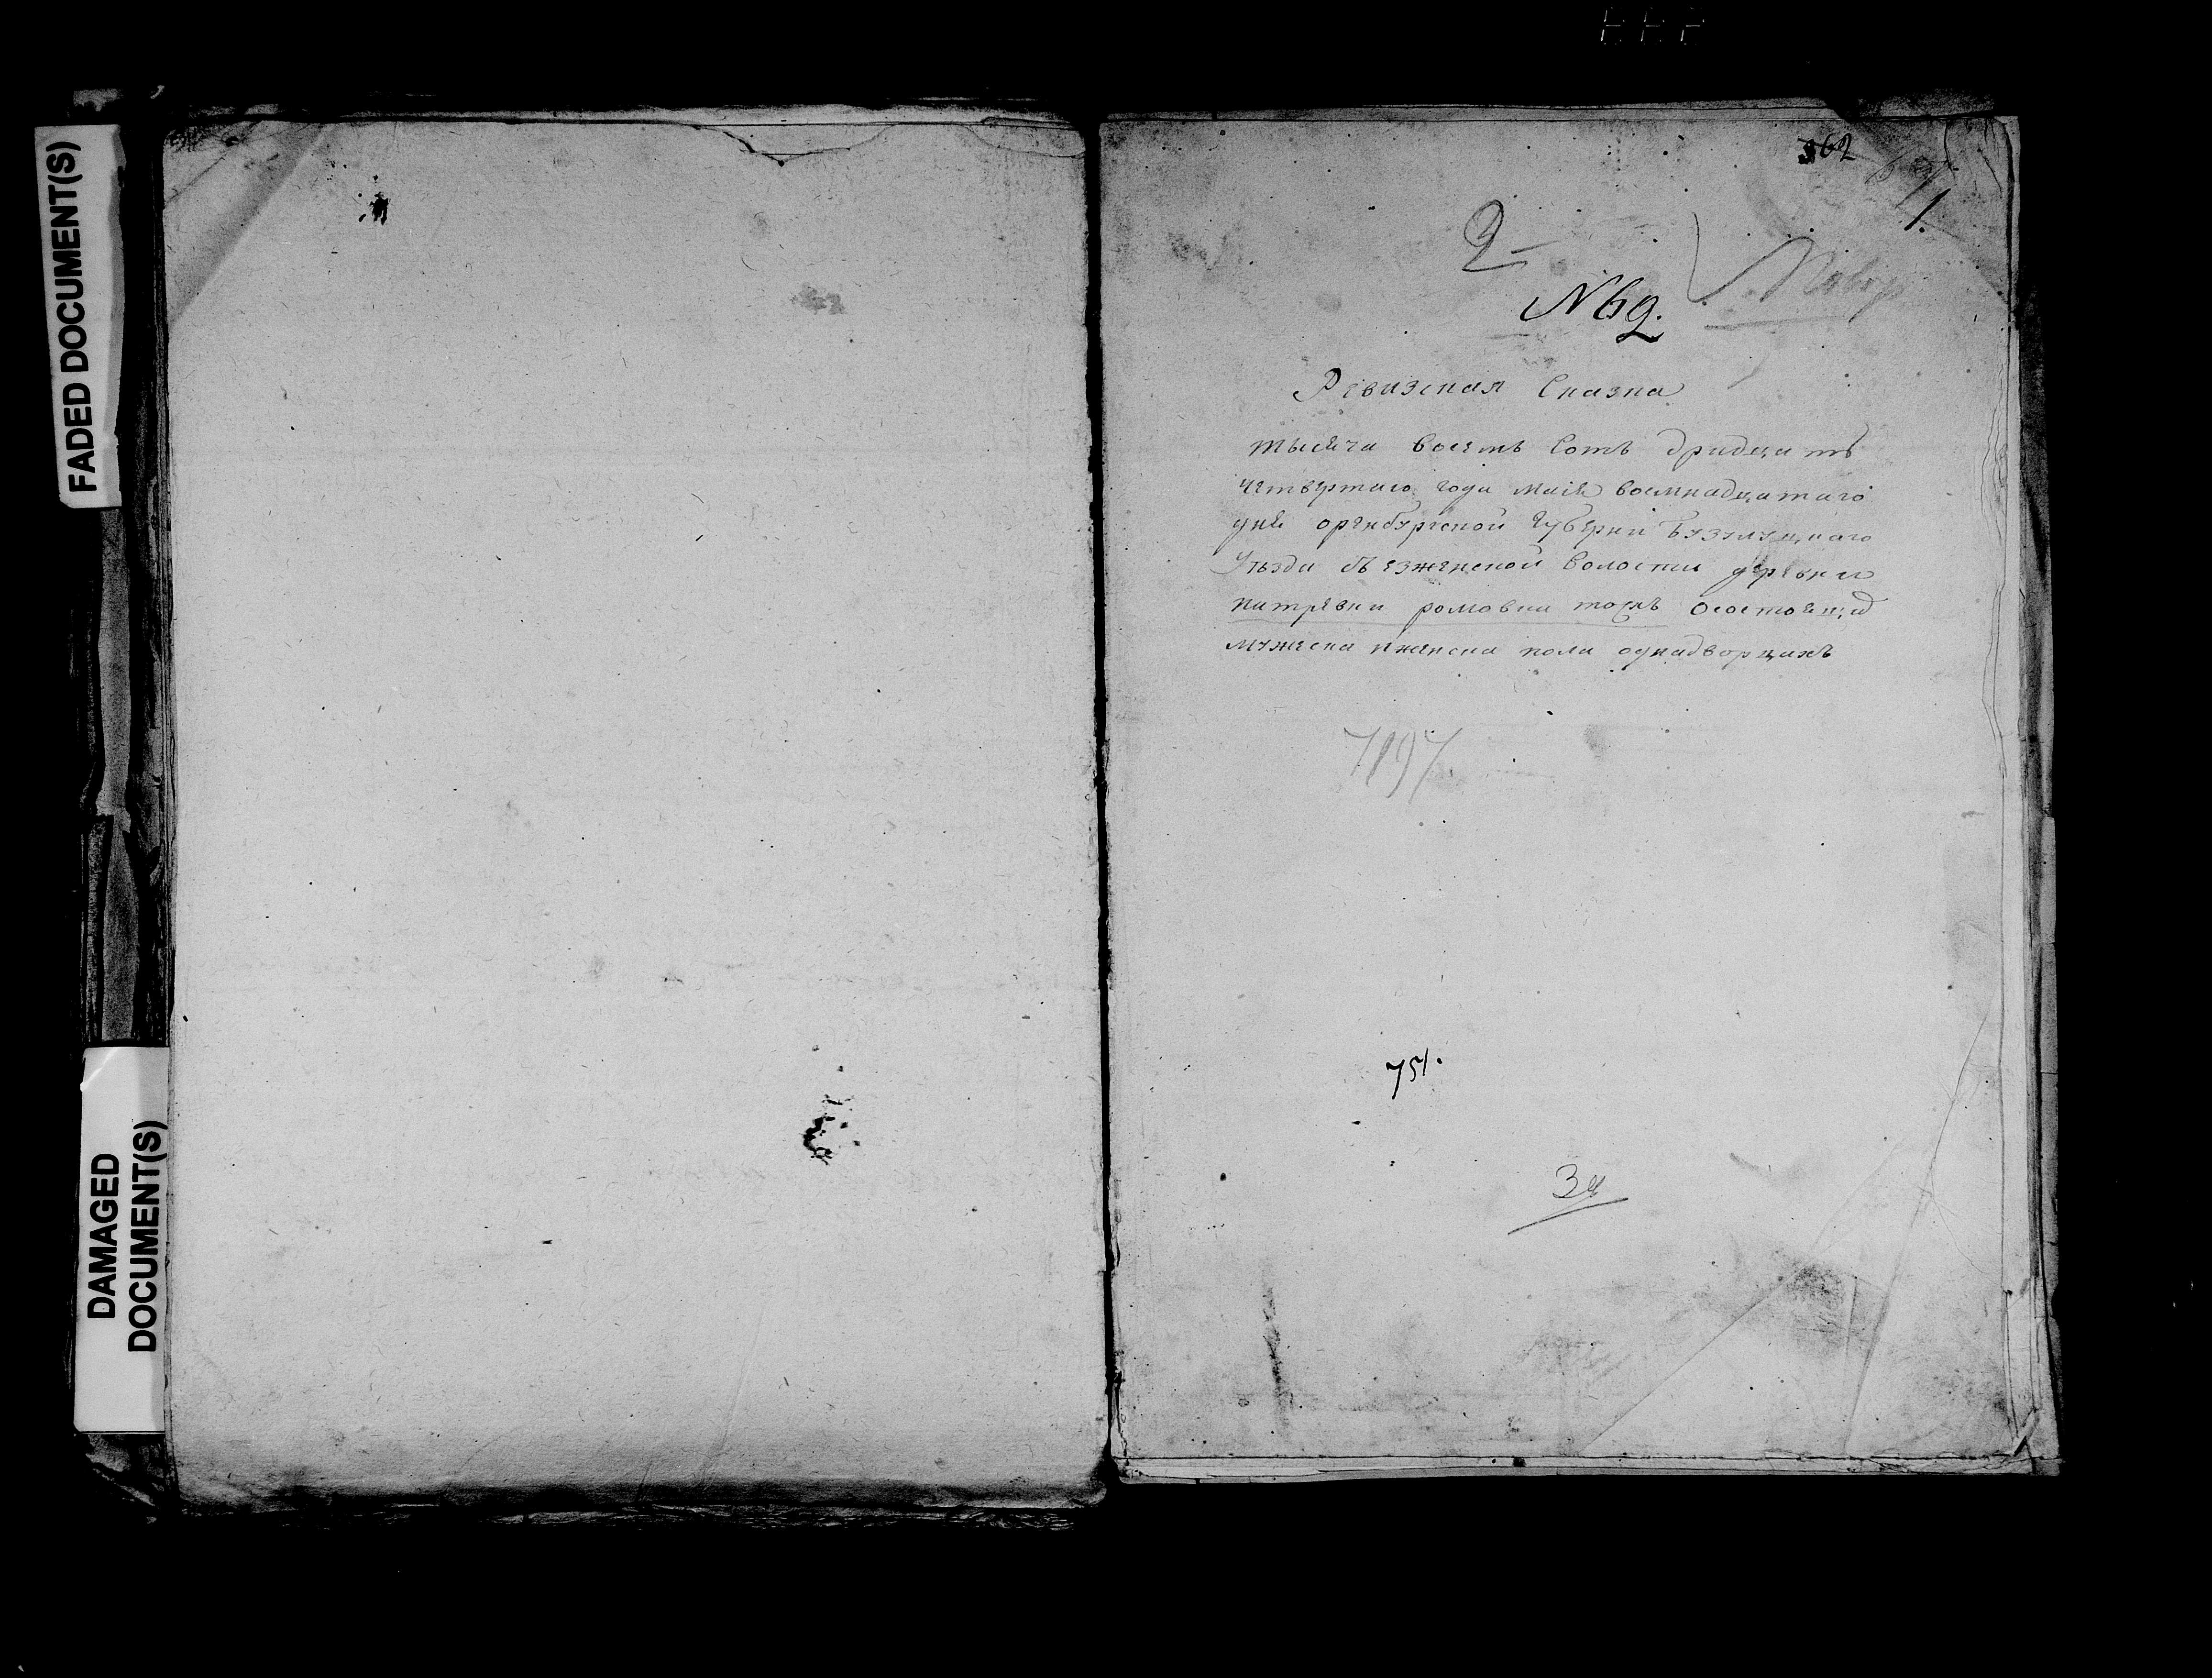 FADED DOCUMENT(S)
DAMAGED
DOCUMENT(S)
362
1.
2
N 62.
Ревизская Сказка
тысяча восемь сотъ дридцать
четвертаго года маия восмнадцатаго
дня оренбургской губернии Бузулуцкаго
Уезда волости деревни
патревки ромовки тожъ осостоящи
мужеска иженска пола однадворцахъ
7197
751.